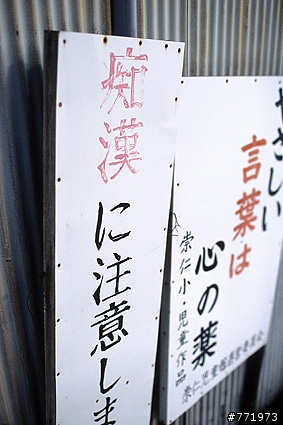 痴漢に注意しま
やさしい
言葉は
心の薬
崇仁小・児童作品
崇仁児童館運営委員会
#771973